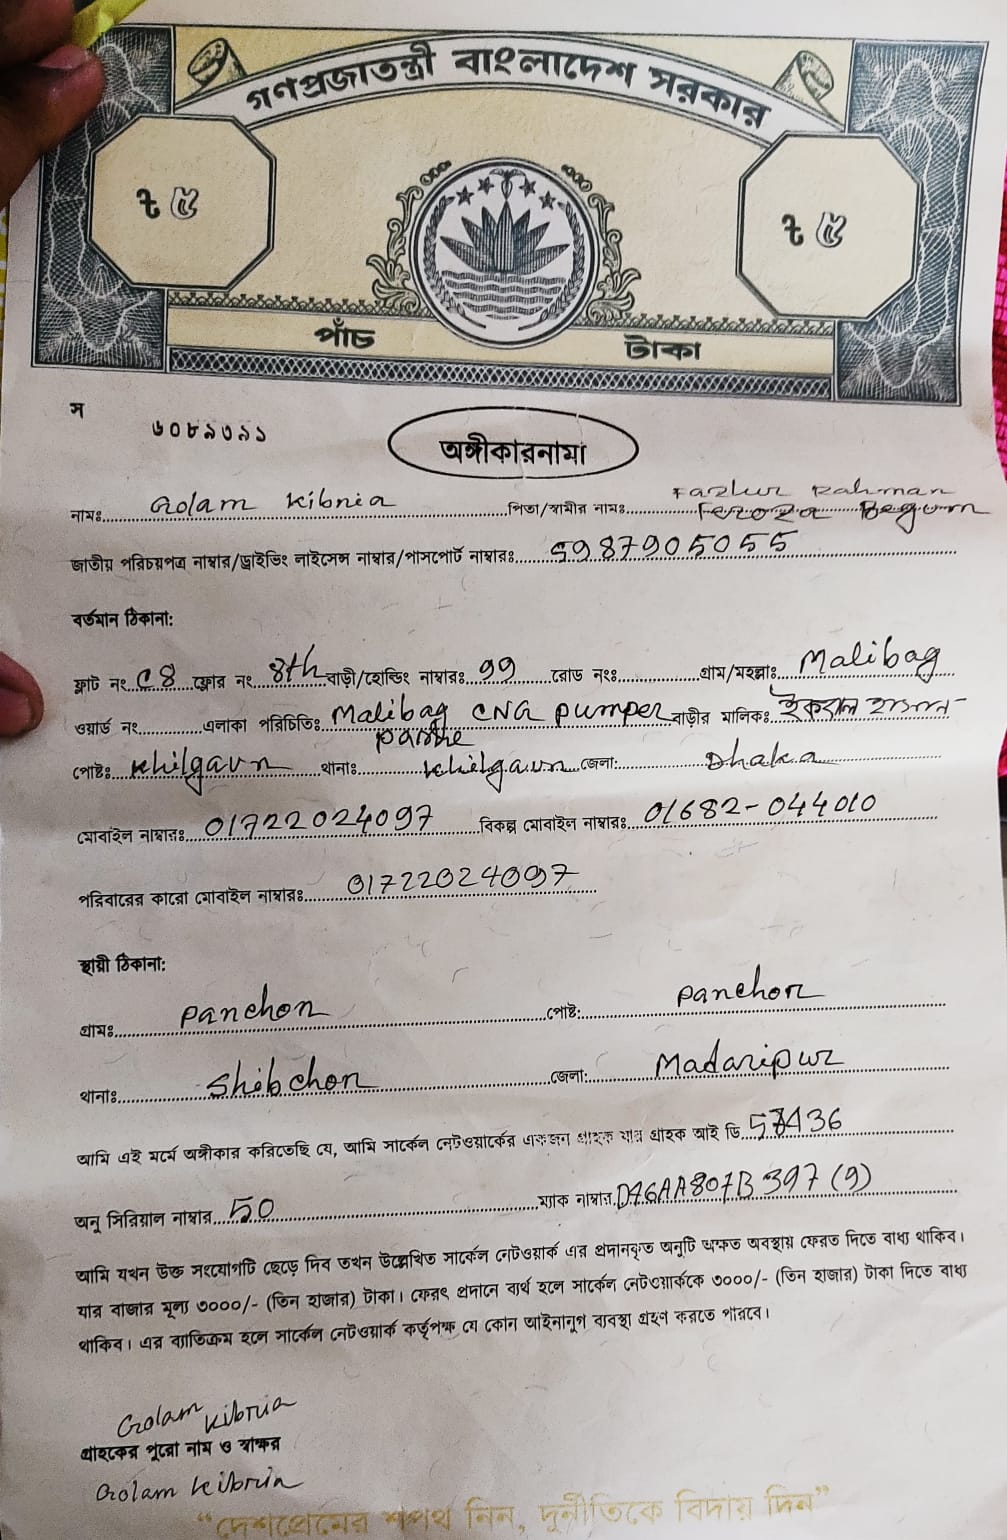 গণপ্রজাতন্ত্রী বাংলাদেশ সরকার
ট ৫ ট ৫
পাঁচ টাকা
স
৬০৮৯৩৯১
অঙ্গীকারনামা
নামঃ Golam Kibria পিতা/স্বামীর নামঃ Fazlur Rahman
Feroza Begum
জাতীয় পরিচয়পত্র নাম্বার/ড্রাইভিং লাইসেন্স নাম্বার/পাসপোর্ট নাম্বারঃ 5987905055
বর্তমান ঠিকানা:
ফ্লাট নং C8 ফ্লোর নং 8th বাড়ী/হোল্ডিং নাম্বারঃ 99 রোড নংঃ গ্রাম/মহল্লাঃ Malibag
ওয়ার্ড নং এলাকা পরিচিতিঃ Malibag CNG pumper বাড়ীর মালিকঃ ইকরাল
পোষ্টঃ Khilgaun থানাঃ Khilgaun জেলা: Dhaka
মোবাইল নাম্বারঃ 01722024097 বিকল্প মোবাইল নাম্বারঃ 01682-044010
পরিবারের কারো মোবাইল নাম্বারঃ 01722024097
স্থায়ী ঠিকানা:
গ্রামঃ Panchor পোষ্ট: Panchor
থানাঃ Shibchor জেলা: Madaripur
আমি এই মর্মে অঙ্গীকার করিতেছি যে, আমি সার্কেল নেটওয়ার্কের একজন গ্রাহক যার গ্রাহক আই ডি
অনু সিরিয়াল নাম্বার 50 ম্যাক নাম্বার D46AA807B397 (9)
আমি যখন উক্ত সংযোগটি ছেড়ে দিব তখন উল্লেখিত সার্কেল নেটওয়ার্ক এর প্রদানকৃত অনুটি অক্ষত অবস্থায় ফেরত দিতে বাধ্য থাকিব।
যার বাজার মূল্য ৩০০০/- (তিন হাজার) টাকা। ফেরৎ প্রদানে ব্যর্থ হলে সার্কেল নেটওয়ার্ককে ৩০০০/- (তিন হাজার) টাকা দিতে বাধ্য
থাকিব। এর ব্যতিক্রম হলে সার্কেল নেটওয়ার্ক কর্তৃপক্ষ যে কোন আইনানুগ ব্যবস্থা গ্রহণ করতে পারবে।
Golam Kibria
গ্রাহকের পুরো নাম ও স্বাক্ষর
Golam Kibria
“দেশপ্রেমের শপথ নিন, দূর্নীতিকে বিদায় দিন”